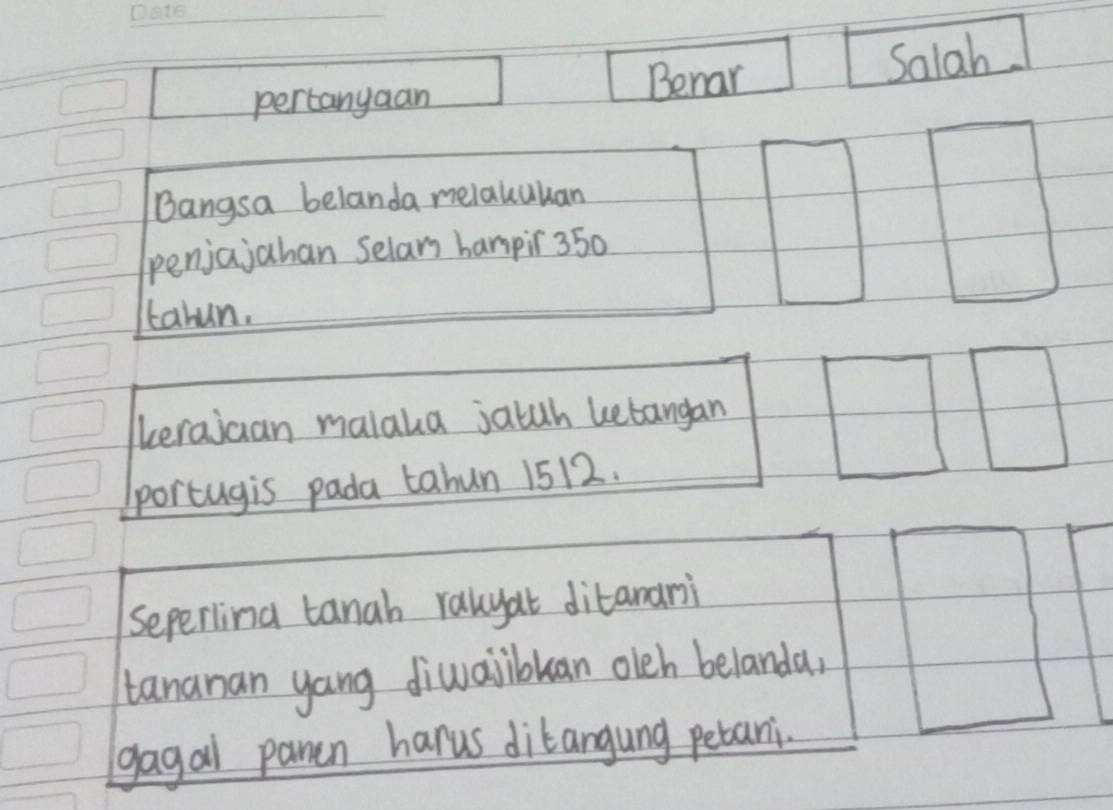 Date
pertanyaan Benar Salah
Bangsa belanda melakukan
penjajahan selam hampir 350
tahun.
kerajaan malaka jatuh ketangan
portugis pada tahun 1512.
seperlima tanah rakyat ditanami
tananan yang diwajibkan oleh belanda,
gagal panen harus ditangung petani.